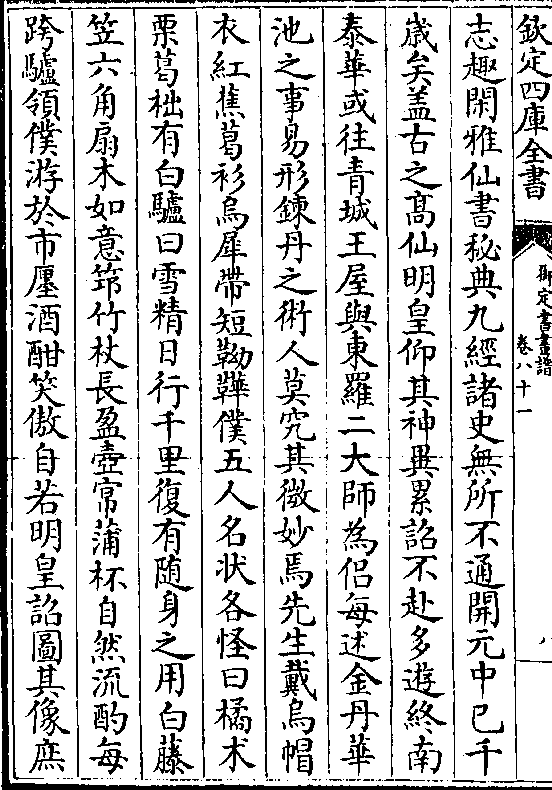 欽定四庫全書
御定書畫譜
卷八十一
八
志趣閑雅仙書秘典九經諸史無所不通開元中已千
歲矣盖古之髙仙明皇仰其神異累詔不赴多遊終南
泰華或往青城王屋與東羅二大師為侣每述金丹華
池之事易形鍊丹之術人莫究其微妙焉先生戴烏帽
衣紅蕉葛衫烏犀帶短靿鞾僕五人名狀各怪曰橘术
栗葛柮有白驢曰雪精日行千里復有随身之用白藤
笠六角扇木如意笻竹杖長盈壺常蒲杯自然流酌每
跨驢領僕游於市廛酒酣笑傲自若明皇詔圖其像庶